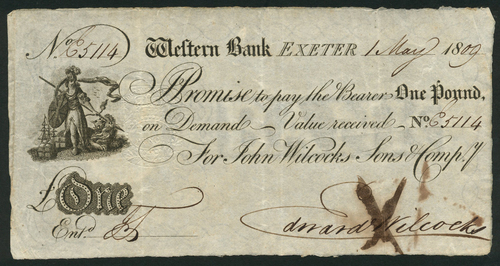 No. E5114 Western Bank EXETER 1 May 1809
I Promise to pay the Bearer One Pound,
on Demand Value received No. E5114
For John Wilcocks Sons & Comp.y
£One
Ent.d
Edward Wilcocks